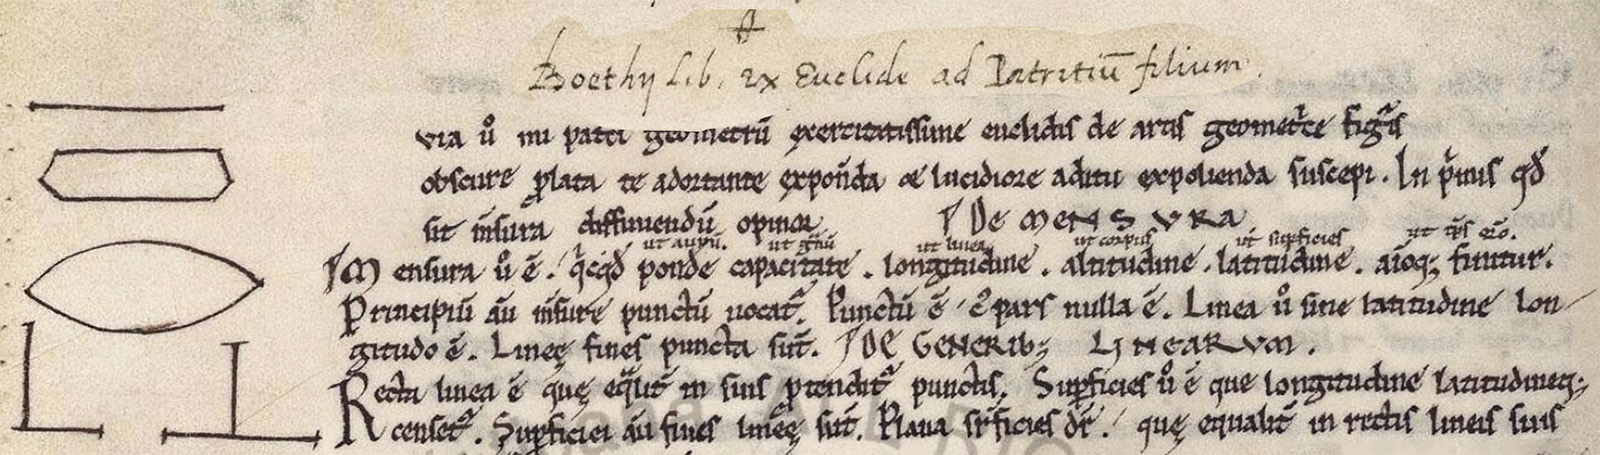 Boethij Lib. ex Euclide ad Patritiū filium.
via ů mi patri geometrū exercitatissime euclidis de artis geometrice figuris
obscure plata te adortante exponda & lucidiore aditu expolienda suscepi. In primis qd
sit msura diffiniendū opinor DE MENSURA
ut linea ut corpus ut supficies
Mensura ů ē. qcqd pondere capacitate. longitudine. altitudine. latitudine. aioq; finitur.
Principiū aū msure punctū uocat. Punctū ē c pars nulla ē. Linea ů sine latitudine lon
gitudo ē. Lineę fines puncta sūt. DE GENERIB; LINEARUM.
Recta linea ē quę equit in suis ptendit punctis. Supficies ů ē que longitudine latitudineq;
censet. Supficiei aū fines lineę sūt. Plana supficies dr. quę equalit in rectis lineis suis